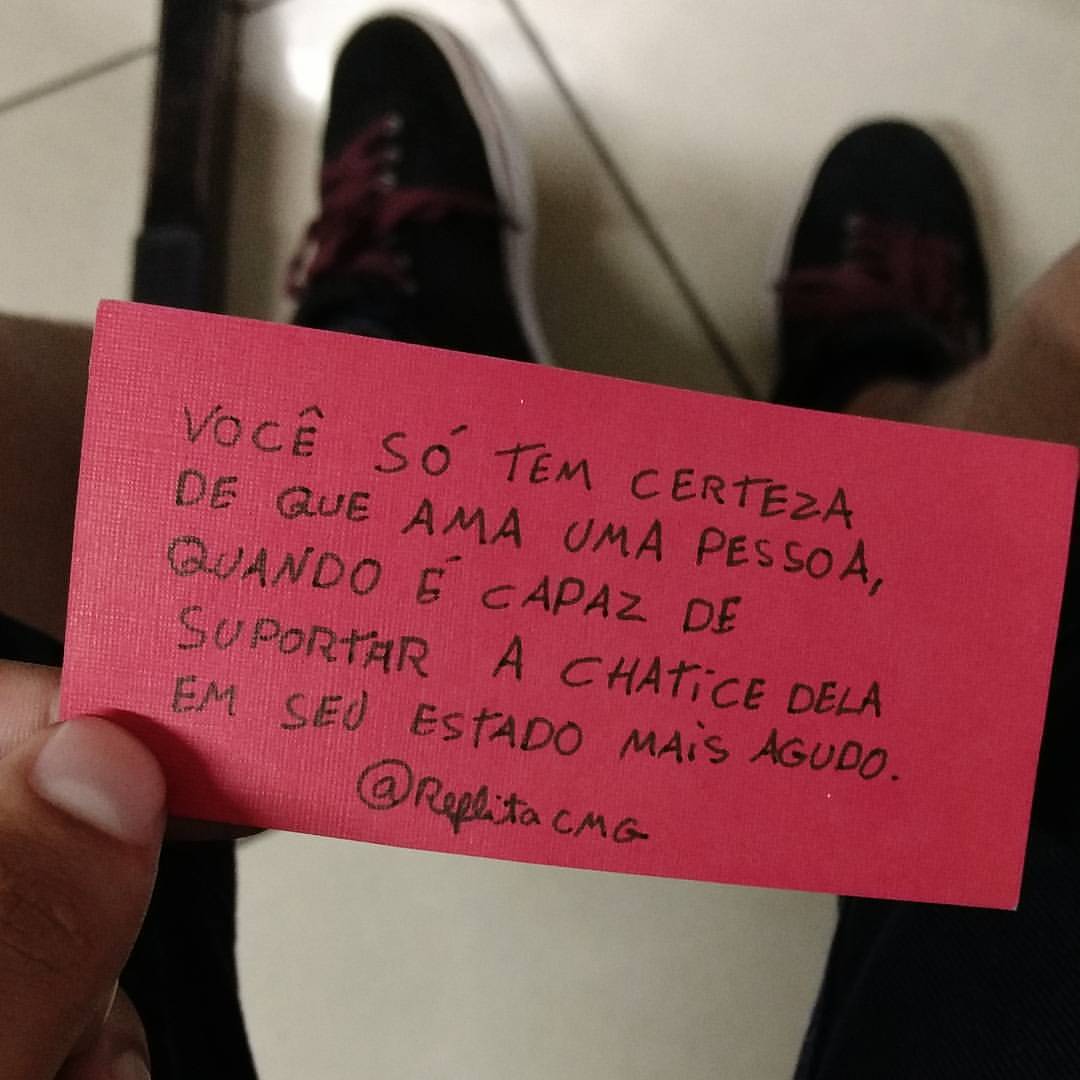 VOCÊ SÓ TEM CERTEZA
DE QUE AMA UMA PESSOA,
QUANDO É CAPAZ DE
SUPORTAR A CHATICE DELA
EM SEU ESTADO MAIS AGUDO.
@ReflitaCMG